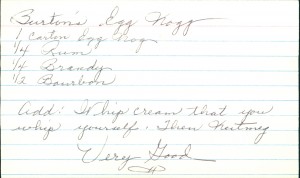 Burton's Egg Nogg
1 Carton Egg Nog
1/4 Rum
1/4 Brandy
1/2 Bourbon
Add: Whip cream that you
whip yourself. Then Nutmeg
Very Good